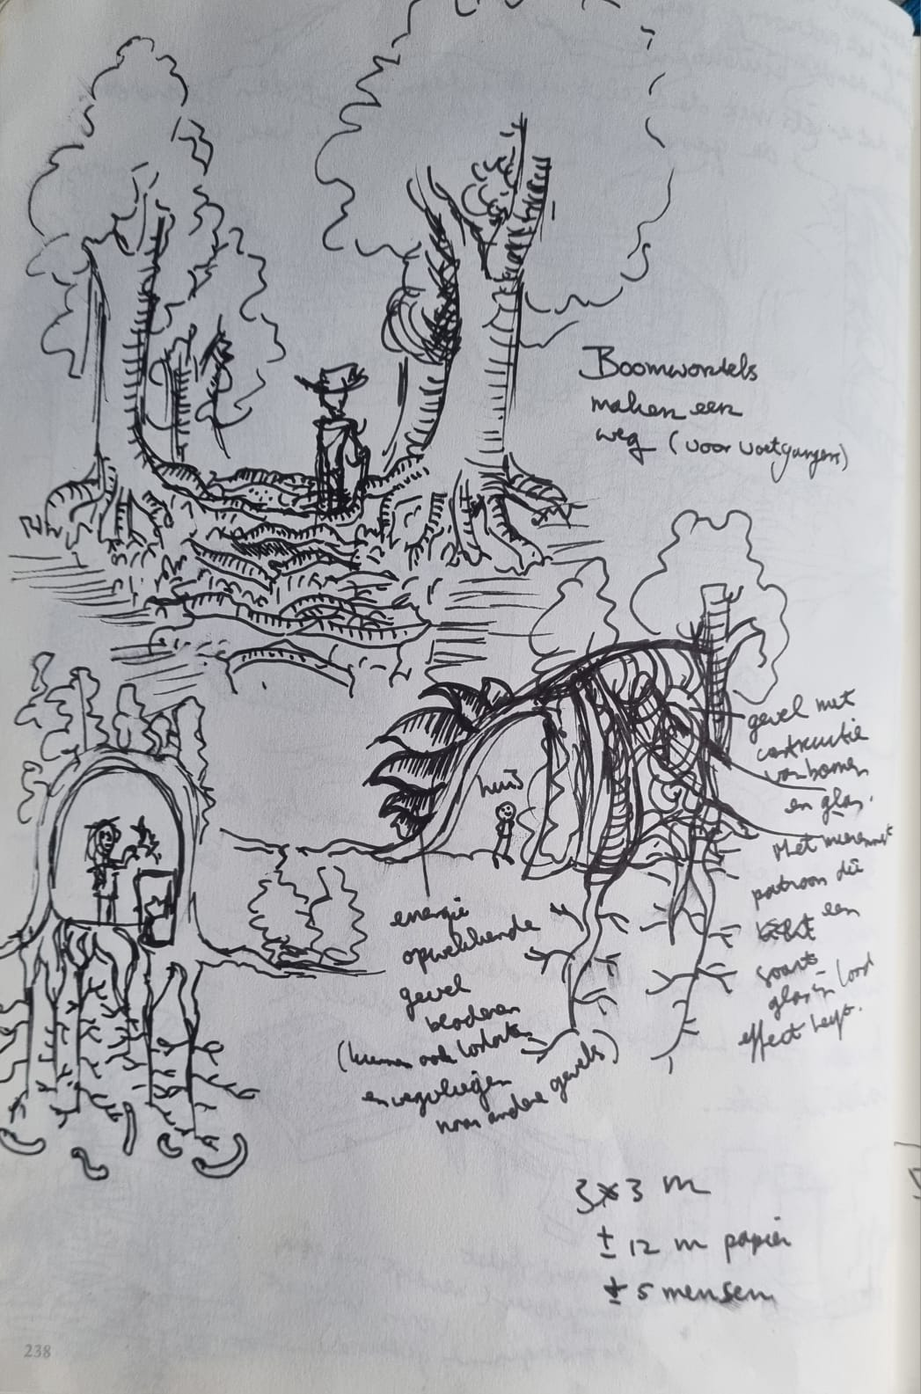 Boomwortels
maken een
weg (voor voetgangers)
gevel met
constructie
van bomen
en glas.
Met
patroon die
een
soort
glas in lood
effect heeft.
huis
energie
opwekkende
gevel
bladeren
(kunnen ook loslaten
en wegvliegen
naar andere gevels)
3x3 m
± 12 m papier
± 5 mensen
238